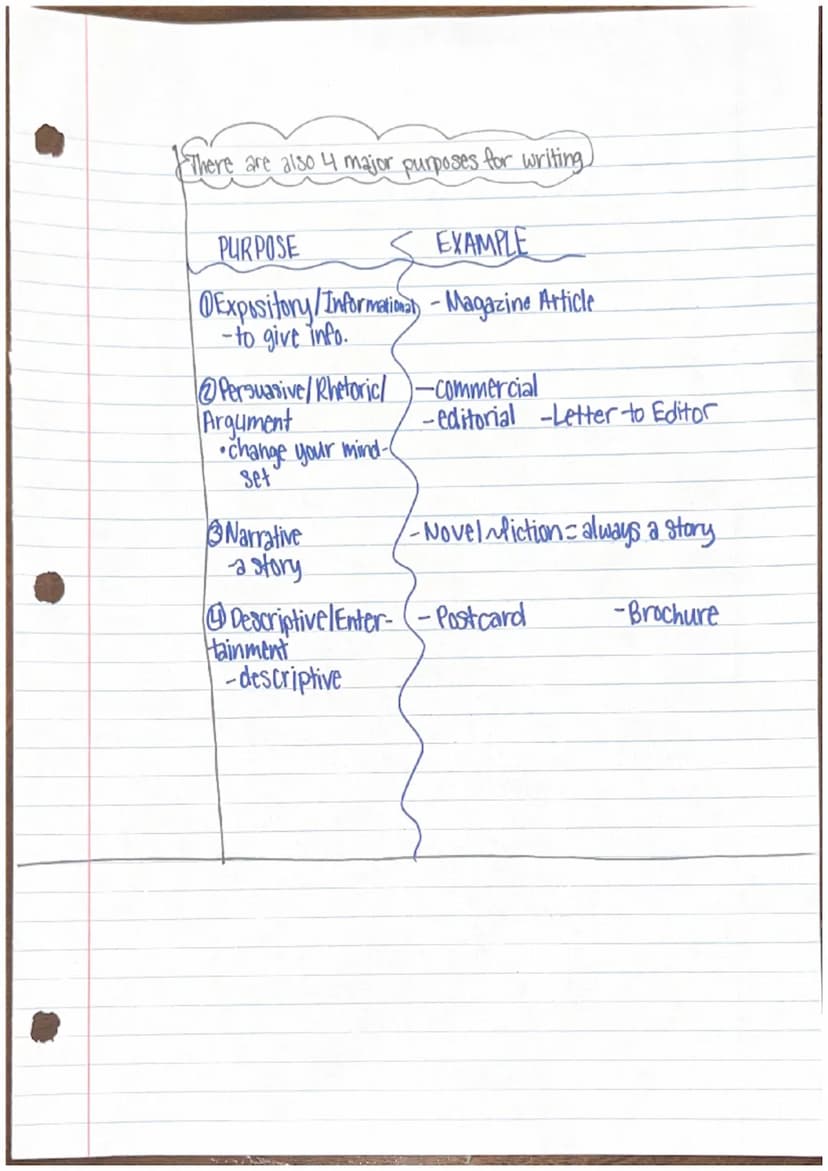 There are also 4 major purposes for writing
PURPOSE EXAMPLE
①Expository/Informational - Magazine Article
-to give info.
②Persuasive/Rhetoric/ -commercial
Argument -editorial -Letter to Editor
•change your mind-
set
③Narrative -Novel fiction = always a story
-a story
④Descriptive/Enter- - Postcard -Brochure
tainment
-descriptive